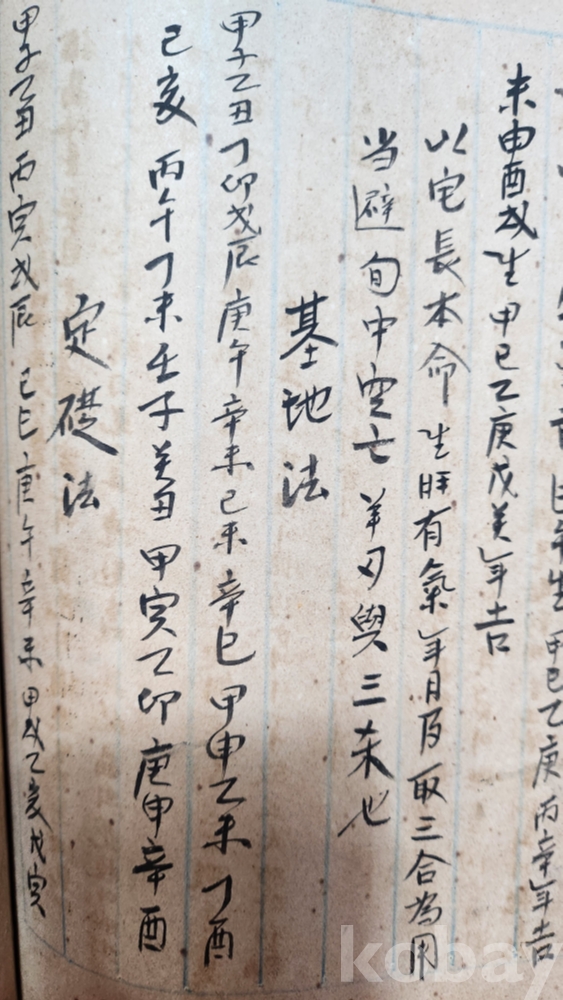 巳午生 甲己乙庚丙辛年吉
未申酉戌生 甲己乙庚戊癸年吉
以宅長本命生旺有氣年月及取三合為用
当避旬中空亡羊刃與三杀也
基地法
甲子乙丑丁卯戊辰庚午辛未己未辛巳甲申乙未丁酉
己亥丙午丁未壬子癸丑甲寅乙卯庚申辛酉
定礎法
甲子乙丑丙寅戊辰己巳庚午辛未甲戌乙亥戊寅
kobay